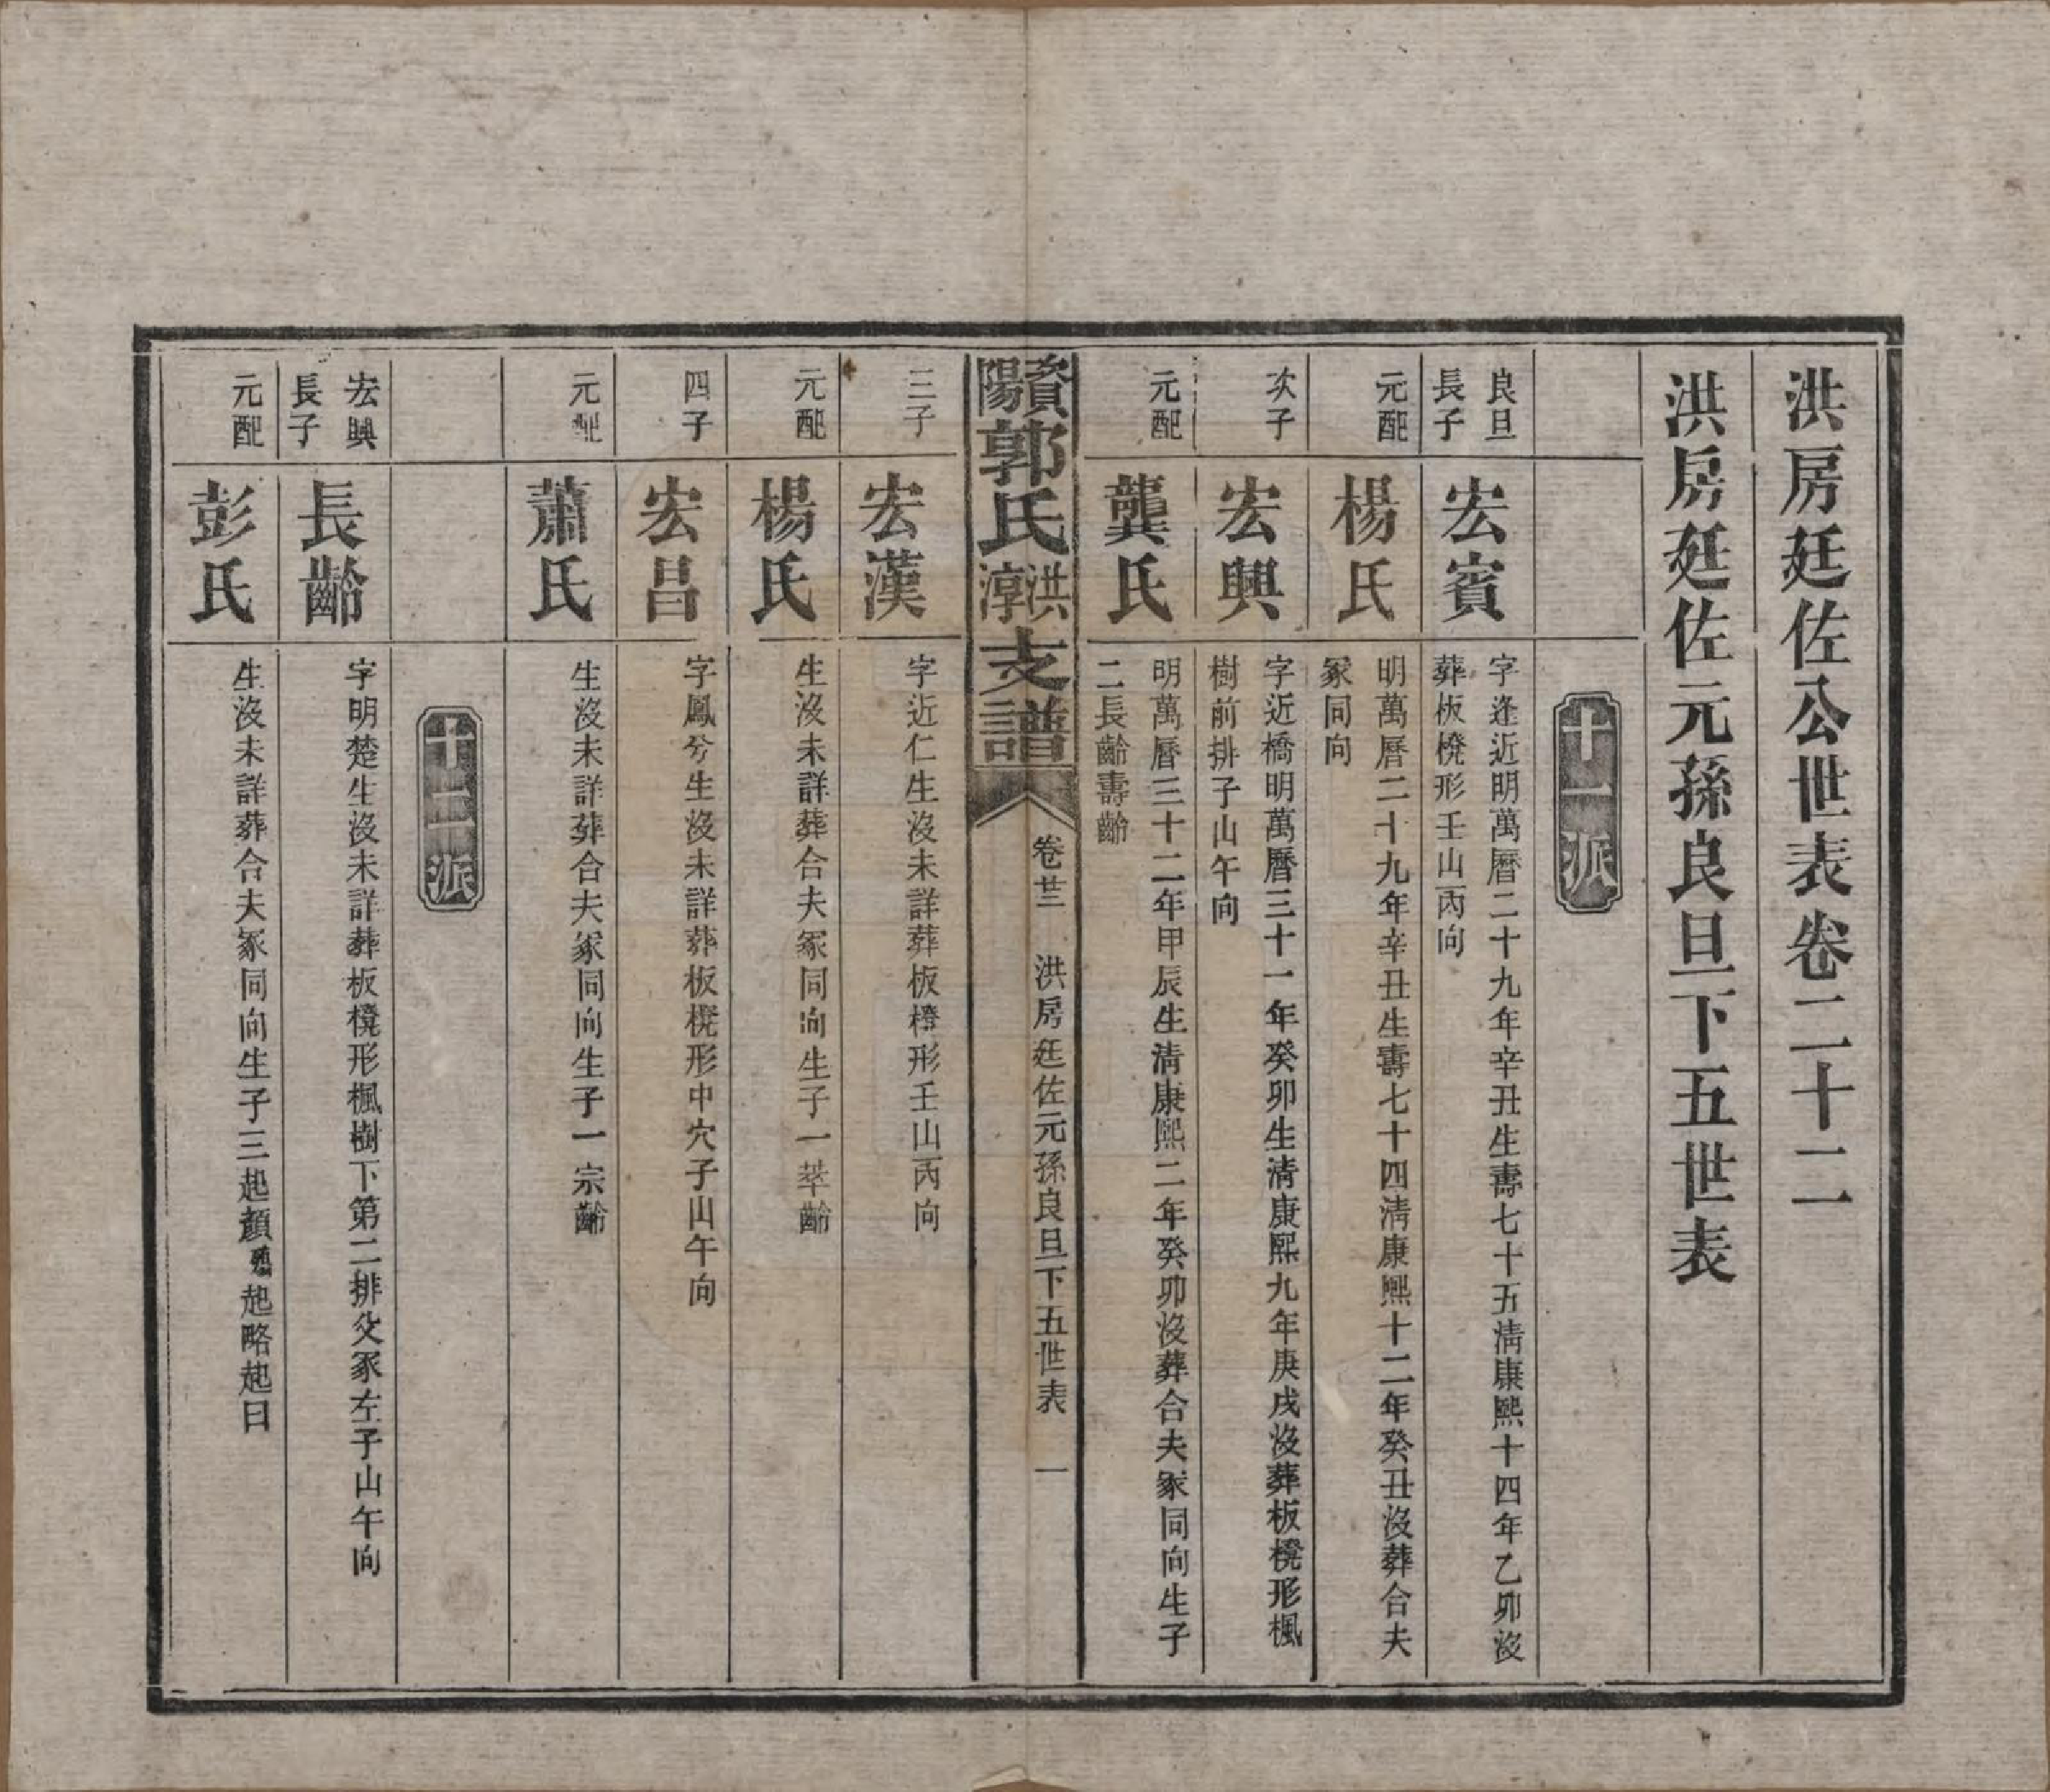 洪房廷佐公世表卷二十二
洪房廷佐元孫良旦下五世表
十一派
良旦
長子
宏賓
字逢近明萬曆二十九年辛丑生壽七十五淸康熙十四年乙卯沒
葬板櫈形壬山丙向
元配
楊氏
明萬曆二十九年辛丑生壽七十四淸康熙十二年癸丑沒葬合夫
冢同向
次子
宏興
字近橋明萬曆三十一年癸卯生淸康熙九年庚戌沒葬板櫈形楓
樹前排子山午向
元配
龔氏
明萬曆三十二年甲辰生淸康熙二年癸卯沒葬合夫冢同向生子
二長齡壽齡
資陽郭氏洪淳支譜
卷廿二 洪房廷佐元孫良旦下五世表 一
三子
宏漢
字近仁生沒未詳葬板櫈形壬山丙向
元配
楊氏
生沒未詳葬合夫冢同向生子一萃齡
四子
宏昌
字鳳兮生沒未詳葬板櫈形中穴子山午向
元配
蕭氏
生沒未詳葬合夫冢同向生子一宗齡
十二派
宏興
長子
長齡
字明楚生沒未詳葬板櫈形楓樹下第二排父冢左子山午向
元配
彭氏
生沒未詳葬合夫冢同向生子三起顏起略起曰